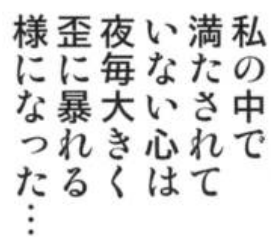 私の中で
満たされて
いない心は
夜毎大きく
歪に暴れる
様になった…